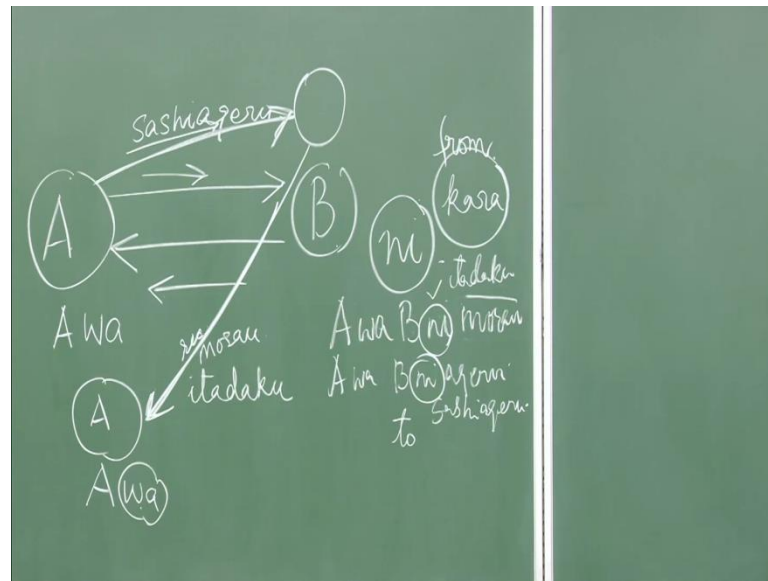 sashiageru
A
B
from
kara
ni
itadaku
A wa B ni morau
A wa
morau
itadaku
A wa B ni ageru
sashiageru
to
A
A wa